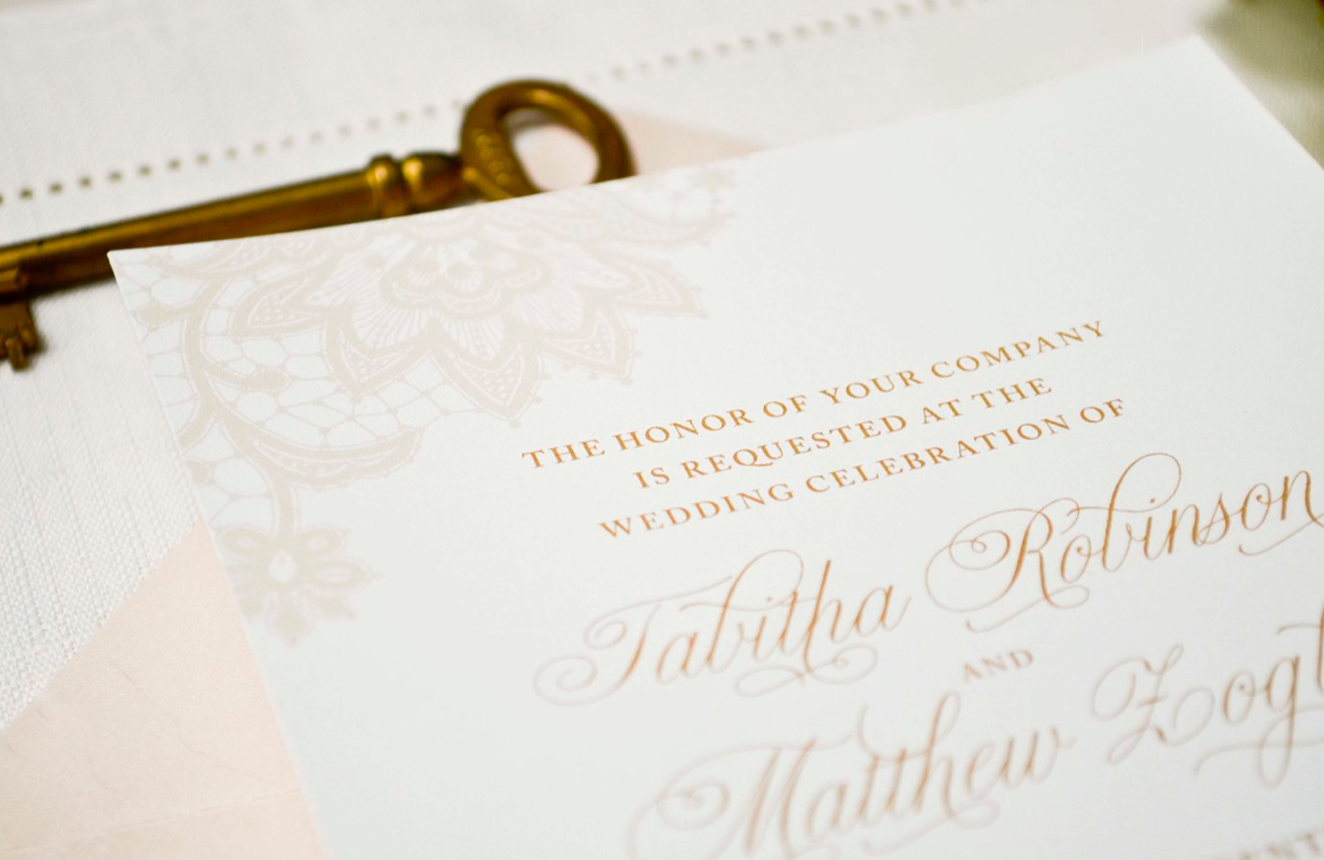 THE HONOR OF YOUR COMPANY
IS REQUESTED AT THE
WEDDING CELEBRATION OF
Tabitha Robinson
AND
Matthew